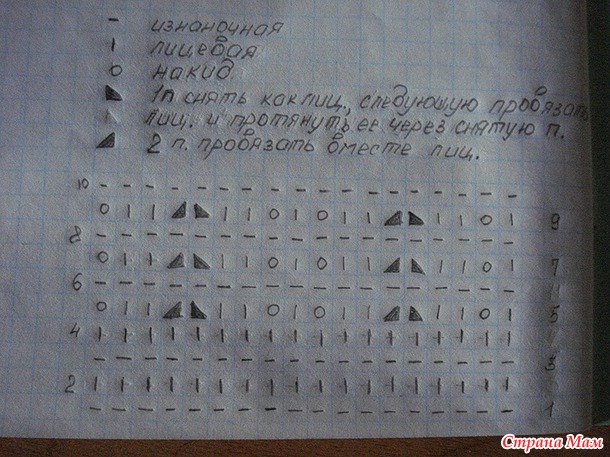 - изнаночная
| лицевая
о накид
◣ 1п снять как лиц., следующую провязать
лиц. и протянуть ее через снятую п.
◢ 2 п. провязать вместе лиц.
10 - - - - - - - - - - - - - - - - - -
о | | ◢ ◣ | | о | о | | ◢ ◣ | | о | 9
8 - - - - - - - - - - - - - - - - - -
о | | ◢ ◣ | | о | о | | ◢ ◣ | | о | 7
6 - - - - - - - - - - - - - - - - - -
о | | ◢ ◣ | | о | о | | ◢ ◣ | | о | 5
4 | | | | | | | | | | | | | | | | | |
- - - - - - - - - - - - - - - - - - 3
2 | | | | | | | | | | | | | | | | | |
- - - - - - - - - - - - - - - - - - 1
Страна Мам